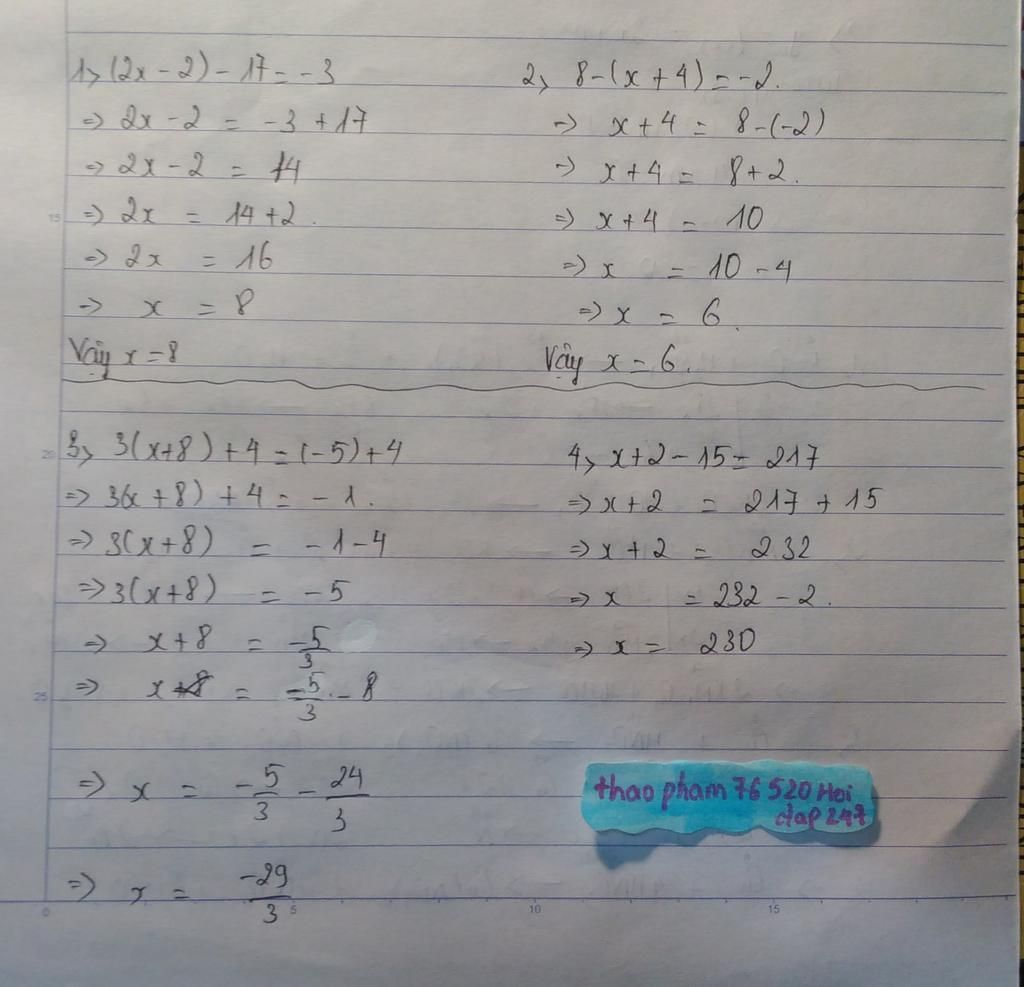 1, (2x - 2) - 17 = -3
=> 2x - 2 = -3 + 17
=> 2x - 2 = 14
=> 2x = 14 + 2.
=> 2x = 16
=> x = 8
Vậy x = 8
2, 8 - (x + 4) = -2.
=> x + 4 = 8 - (-2)
=> x + 4 = 8 + 2.
=> x + 4 = 10
=> x = 10 - 4
=> x = 6.
Vậy x = 6.
3, 3(x+8) + 4 = (-5) + 4
=> 3(x + 8) + 4 = -1.
=> 3(x+8) = -1 - 4
=> 3(x+8) = -5
=> x + 8 = -5/3
=> x = -5/3 - 8
=> x = -5/3 - 24/3
=> x = -29/3
4, x + 2 - 15 = 217
=> x + 2 = 217 + 15
=> x + 2 = 232
=> x = 232 - 2.
=> x = 230
thao pham 76 520 Hoi
dap 247
15
20
25
0 5 10 15